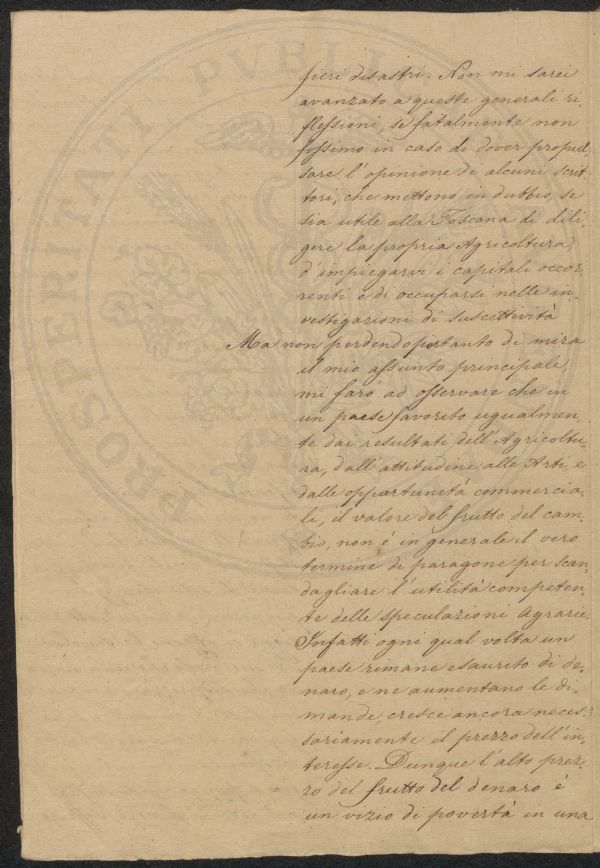 PROSPERITATI PVBLIC
fieri disastri. Non mi sarei
avanzato a queste generali ri
flessioni, se fatalmente non
fossimo in caso di dover propul-
sare l'opinione di alcuni scrit
tori, che mettono in dubbio, se
sia utile alla Toscana di dili-
gere la propria Agricoltura,
d'impiegarvi i capitali occor-
renti e di occuparsi nelle in-
vestigazioni di suscettività
Ma non perdendo pertanto di mira
il mio assunto principale,
mi farò ad osservare che in
un paese favorito ugualmen-
te dai resultati dell'Agricoltu-
ra, dall'attitudine alle Arti, e
dalle opportunità commercia-
li, il valore del frutto del cam-
bio, non é in generale il vero
termine di paragone per scan-
dagliare l'utilità competen-
te delle speculazioni Agrarie.
Infatti ogni qual volta un
paese rimane esaurito di de-
naro, e ne aumentano le di-
mande, cresce ancora neces-
sariamente il prezzo dell'in-
teresse. Dunque l'alto prez-
zo del frutto del denaro é
un vizio di povertà in una